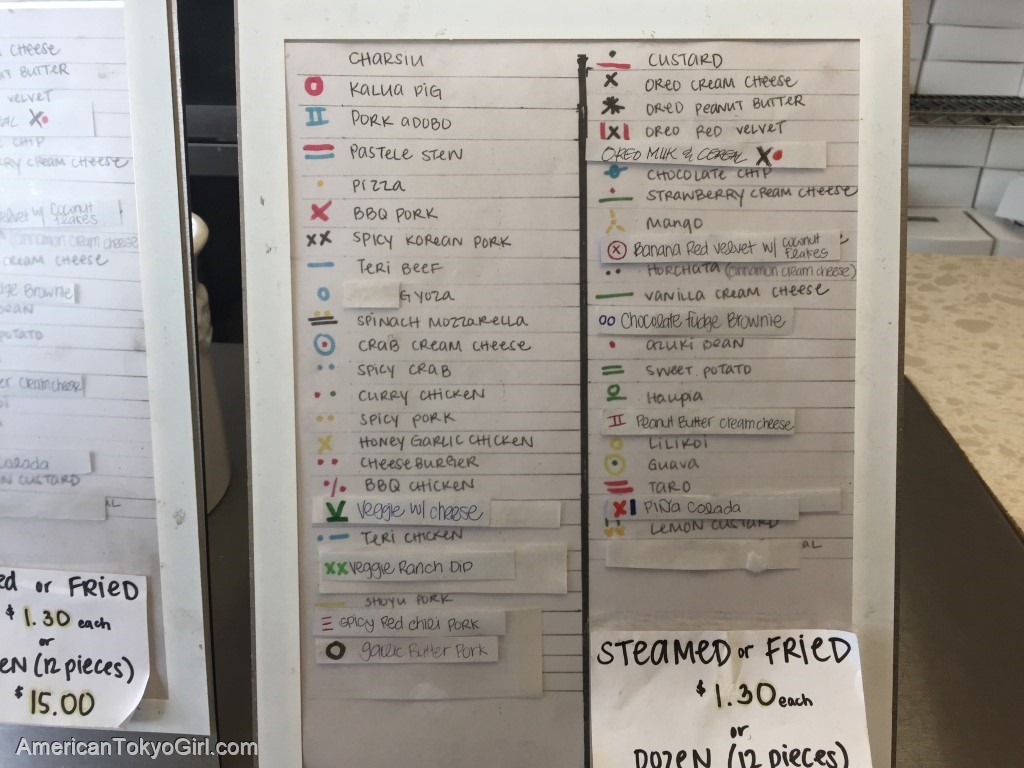 CHEESE
BUTTER
VELVET
CHIP
CREAM CHEESE
Velvet w/ Coconut
Flakes
(cinnamon cream cheese
CREAM CHEESE
Brownie
POTATO
cream cheese
Colada
CUSTARD
AL
or FRIED
$1.30 each
or
(12 pieces)
$15.00
CHARSIU
KALUA PIG
PORK ADOBO
PASTELE STEW
PIZZA
BBQ PORK
SPICY KOREAN PORK
TERI BEEF
GYOZA
SPINACH MOZZARELLA
CRAB CREAM CHEESE
SPICY CRAB
CURRY CHICKEN
SPICY PORK
HONEY GARLIC CHICKEN
CHEESEBURGER
BBQ CHICKEN
Veggie w/ cheese
TERI CHICKEN
Veggie Ranch Dip
SHOYU PORK
Spicy Red chili Pork
Garlic Butter Pork
CUSTARD
OREO CREAM CHEESE
OREO PEANUT BUTTER
OREO RED VELVET
OREO MILK & CEREAL
CHOCOLATE CHIP
STRAWBERRY CREAM CHEESE
MANGO
Banana Red Velvet w/ Coconut
Flakes
HORCHATA (cinnamon cream cheese)
VANILLA CREAM CHEESE
Chocolate Fudge Brownie
AZUKI BEAN
SWEET POTATO
HAUPIA
Peanut Butter cream cheese
LILIKOI
GUAVA
TARO
PIÑA COLADA
LEMON CUSTARD
AL
STEAMED or FRIED
$1.30 each
or
DOZEN (12 PIECES)
AmericanTokyoGirl.com